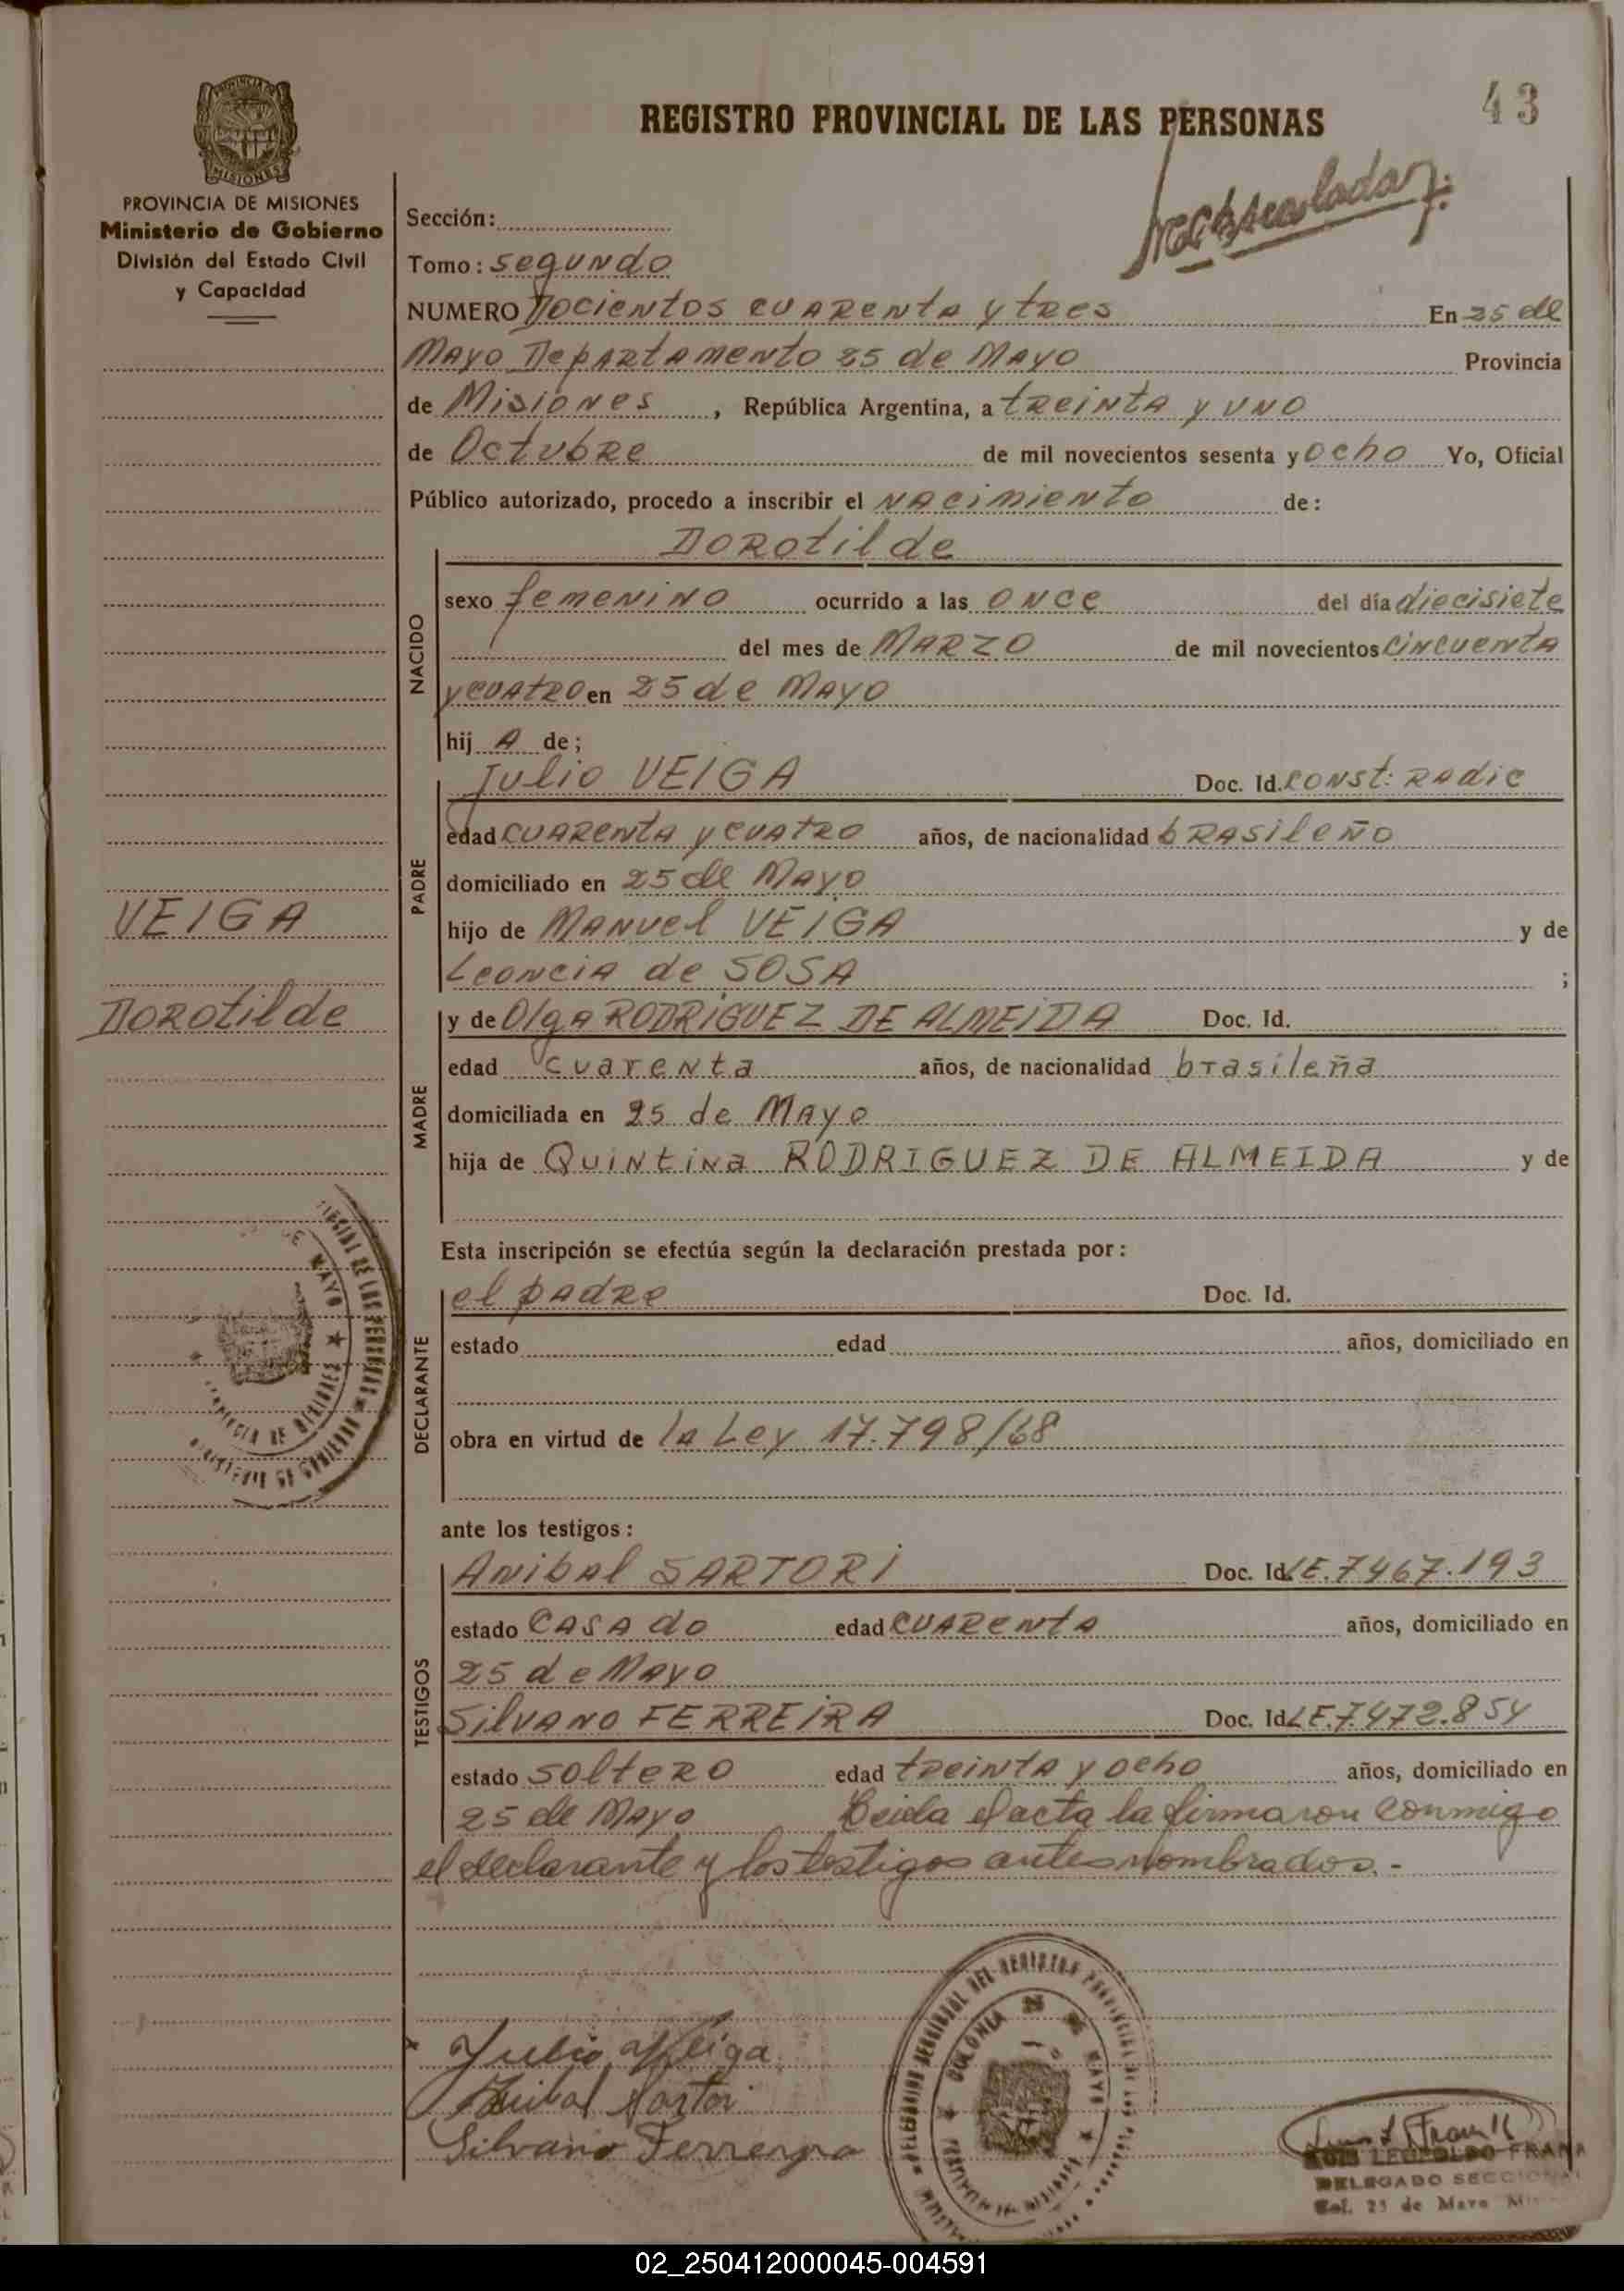 43
REGISTRO PROVINCIAL DE LAS PERSONAS
PROVINCIA DE
MISIONES
PROVINCIA DE MISIONES
Ministerio de Gobierno
División del Estado Civil
y Capacidad
Sección:
Tomo: segundo
NUMERO Docientos cuarenta y tres En 25 de
Mayo Departamento 25 de Mayo Provincia
de Misiones, República Argentina, a treinta y uno
de Octubre de mil novecientos sesenta y ocho Yo, Oficial
Público autorizado, procedo a inscribir el nacimiento de:
Dorotilde
NACIDO
sexo femenino ocurrido a las once del día diecisiete
del mes de Marzo de mil novecientos cincuenta
y cuatro en 25 de Mayo
hij A de;
PADRE
Julio VEIGA Doc. Id. const: radic
edad cuarenta y cuatro años, de nacionalidad brasileño
domiciliado en 25 de Mayo
hijo de Manuel VEIGA y de
Leoncia de SOSA ;
VEIGA
Dorotilde
MADRE
y de Olga RODRIGUEZ DE ALMEIDA Doc. Id.
edad cuarenta años, de nacionalidad brasileña
domiciliada en 25 de Mayo
hija de Quintina RODRIGUEZ DE ALMEIDA y de
Esta inscripción se efectúa según la declaración prestada por:
DECLARANTE
el padre Doc. Id.
estado edad años, domiciliado en
obra en virtud de la Ley 17.798/68
ante los testigos:
TESTIGOS
Anibal SARTORI Doc. Id. LE.7467.193
estado casado edad cuarenta años, domiciliado en
25 de Mayo
Silvano FERREIRA Doc. Id. LE.7.472.854
estado soltero edad treinta y ocho años, domiciliado en
25 de Mayo Leida el acta la firmaron conmigo
el declarante y los testigos antes nombrados.-
Julio Veiga
Anibal Sartori
Silvano Ferreyra
COLONIA 25 DE MAYO
LUIS LEOPOLDO FRANK
DELEGADO SECCIONAL
Col. 25 de Mayo
02_250412000045-004591